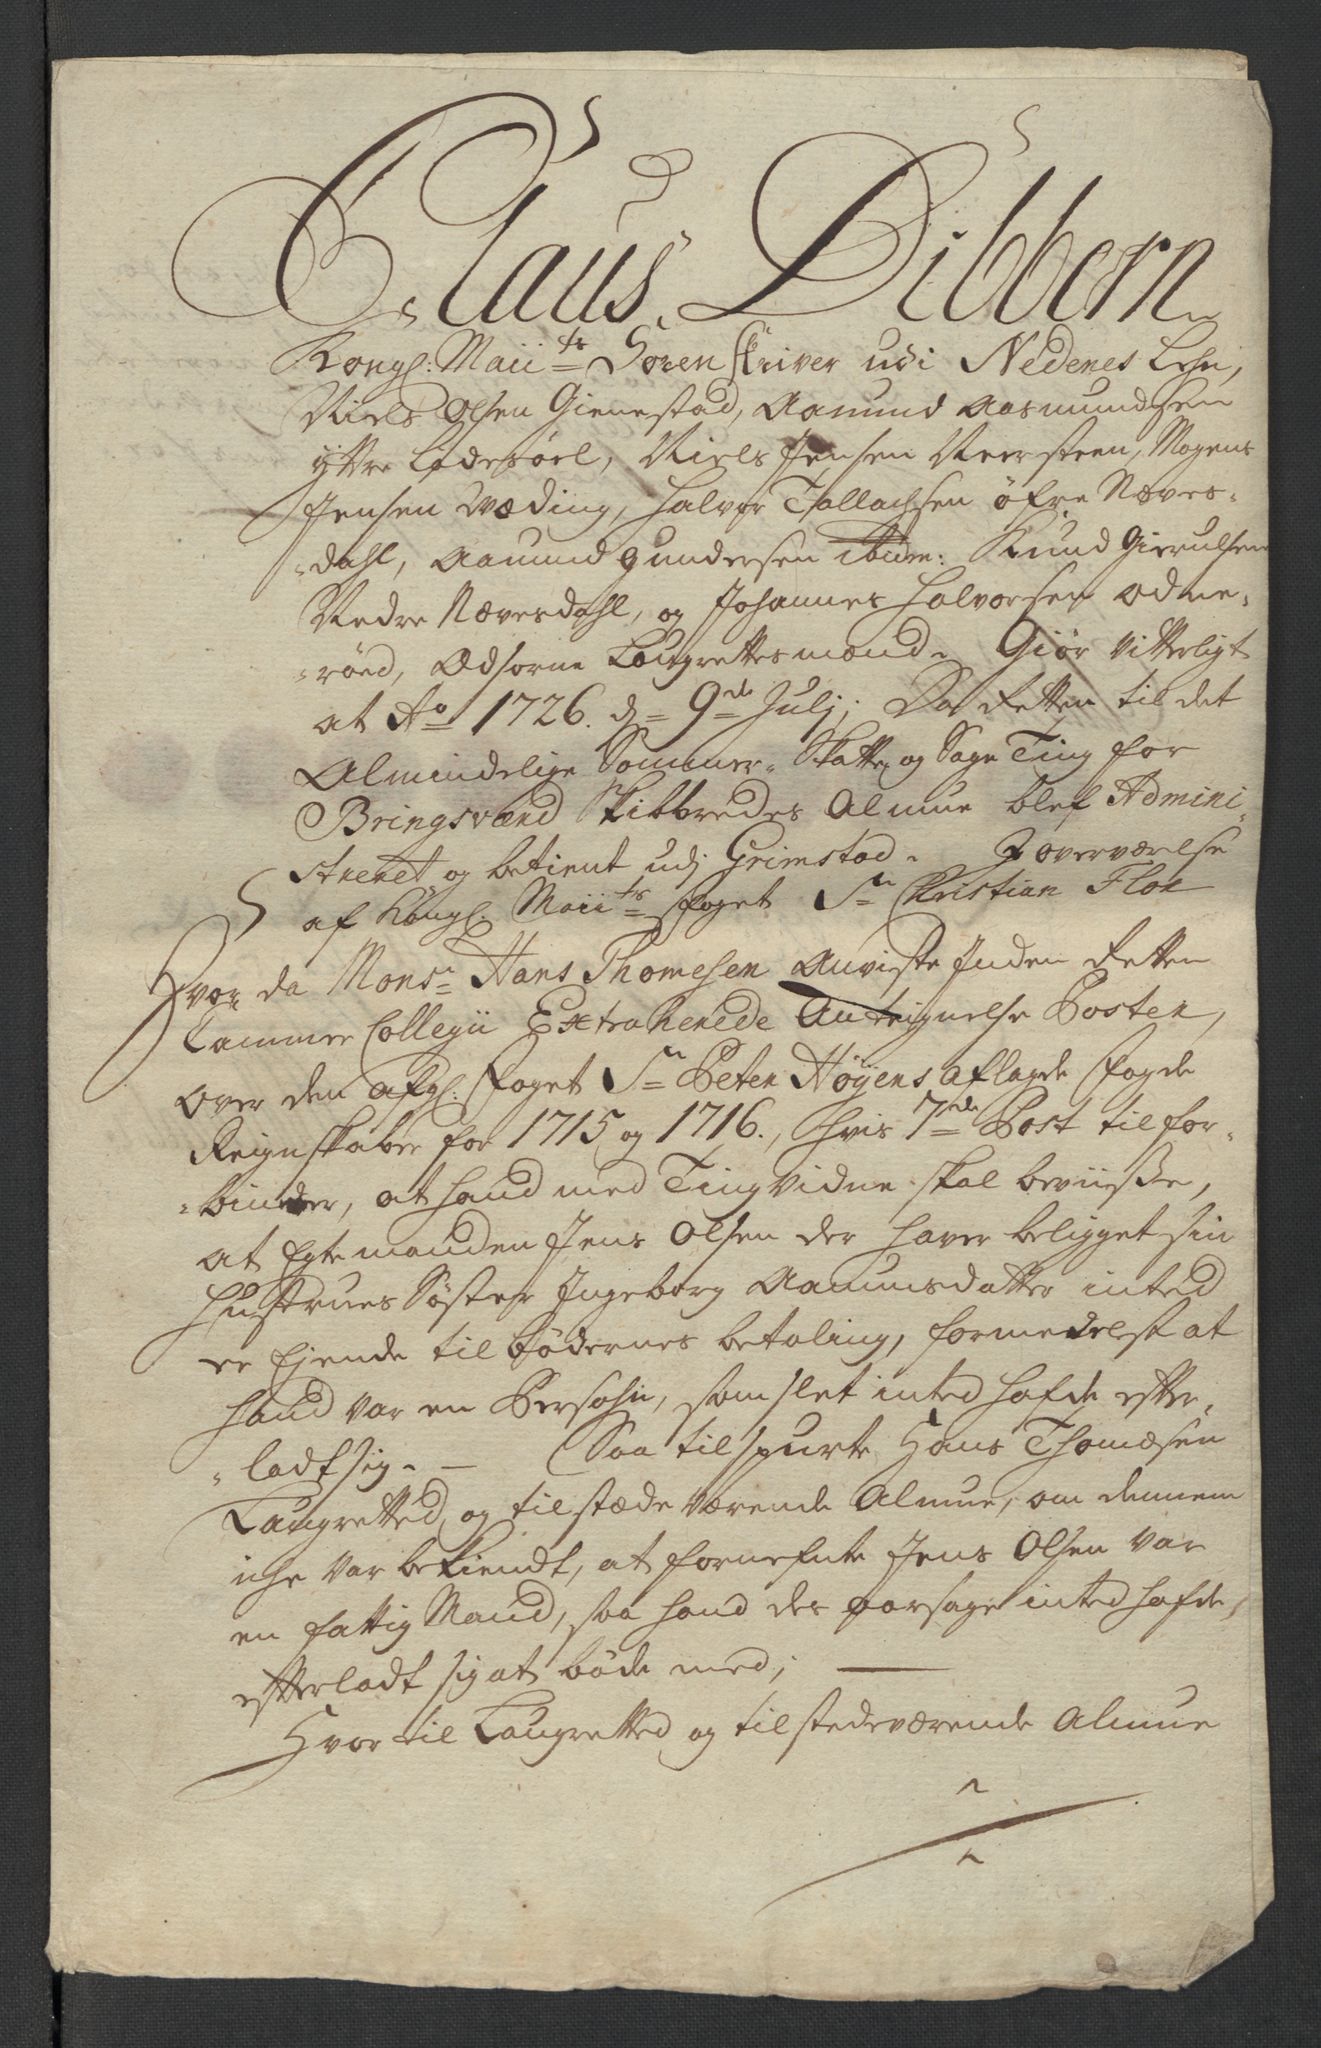 Claus Dibbern
Kongl: Maii.ts Sorenskriver udi Nedenes Lehn,
Niels Olsen Gienestad, Aamund Aasmundsen
yttre Lodesøel, Niels Jensen Reersteen, Mogens
Jensen Wæding, Halvor Tallachsen öfre Næves-
-dahl, Aamund Gundersen ibidm: Knud Gierulsen
Nedre Nævesdahl, og Johannes Halvorsen Odne-
-röed, Edsorne Laugrettesmænd. Giør Vitterligt
at Ao 1726. d = 9de Julj; Da Retten til det
Almindelige Sommer- Skatte og Sage Ting for
Bringsværd Skibbredes Almue blef Admini-
streret og betient udj Grimstad. J overværelse
af Kongl. Maii.ts foget Sr. Christian Flor
Hvor da Monsr. Hans Thomesen Anviste Inden Retten
Cammer Collegii Extraherede Antegnelse Poster,
over den afgl. foget Sr. Peter Høyers aflagde fogde
Reignskaber for 1715 og 1716., hvis 7de Post tilfor-
-binder, at hand med Tingvidne skal beviisse,
at Egtemanden Jens Olsen der haver beligget sin
Hustrues Søster Ingeborg Aamunsdatter inted
er Ejende til bödernes betaling, formedelst at
hand var en Persohn, som slet inted hafde efter-
-ladt sig. - Saa tilspurte Hans Thomæsen
Laugretted og tilstædeværende Almue, om dennem
iche var bekiendt, at fornefnte Jens Olsen var
en fattig Mand, saa hand des aarsage inted hafde
efterladt sig at böde med;
Hvortil Laugretted og tilstedeværende Almue